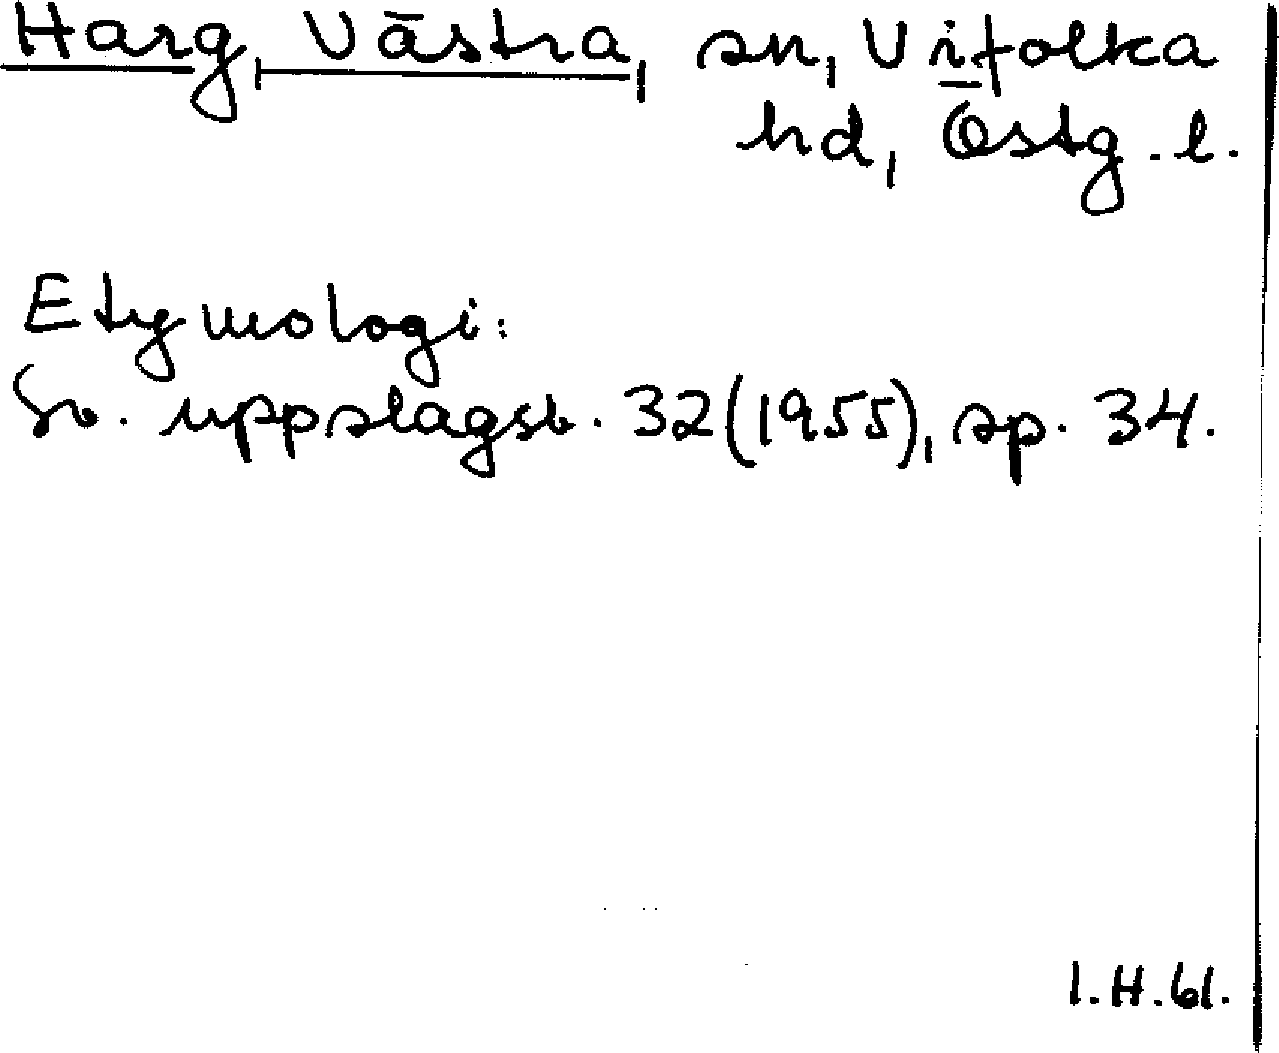 Harg, Västra, sn, Vifolka
hd, Östg. l.
Etymologi:
Sv. uppslagsb. 32 (1955), sp. 34.
I.H.61.